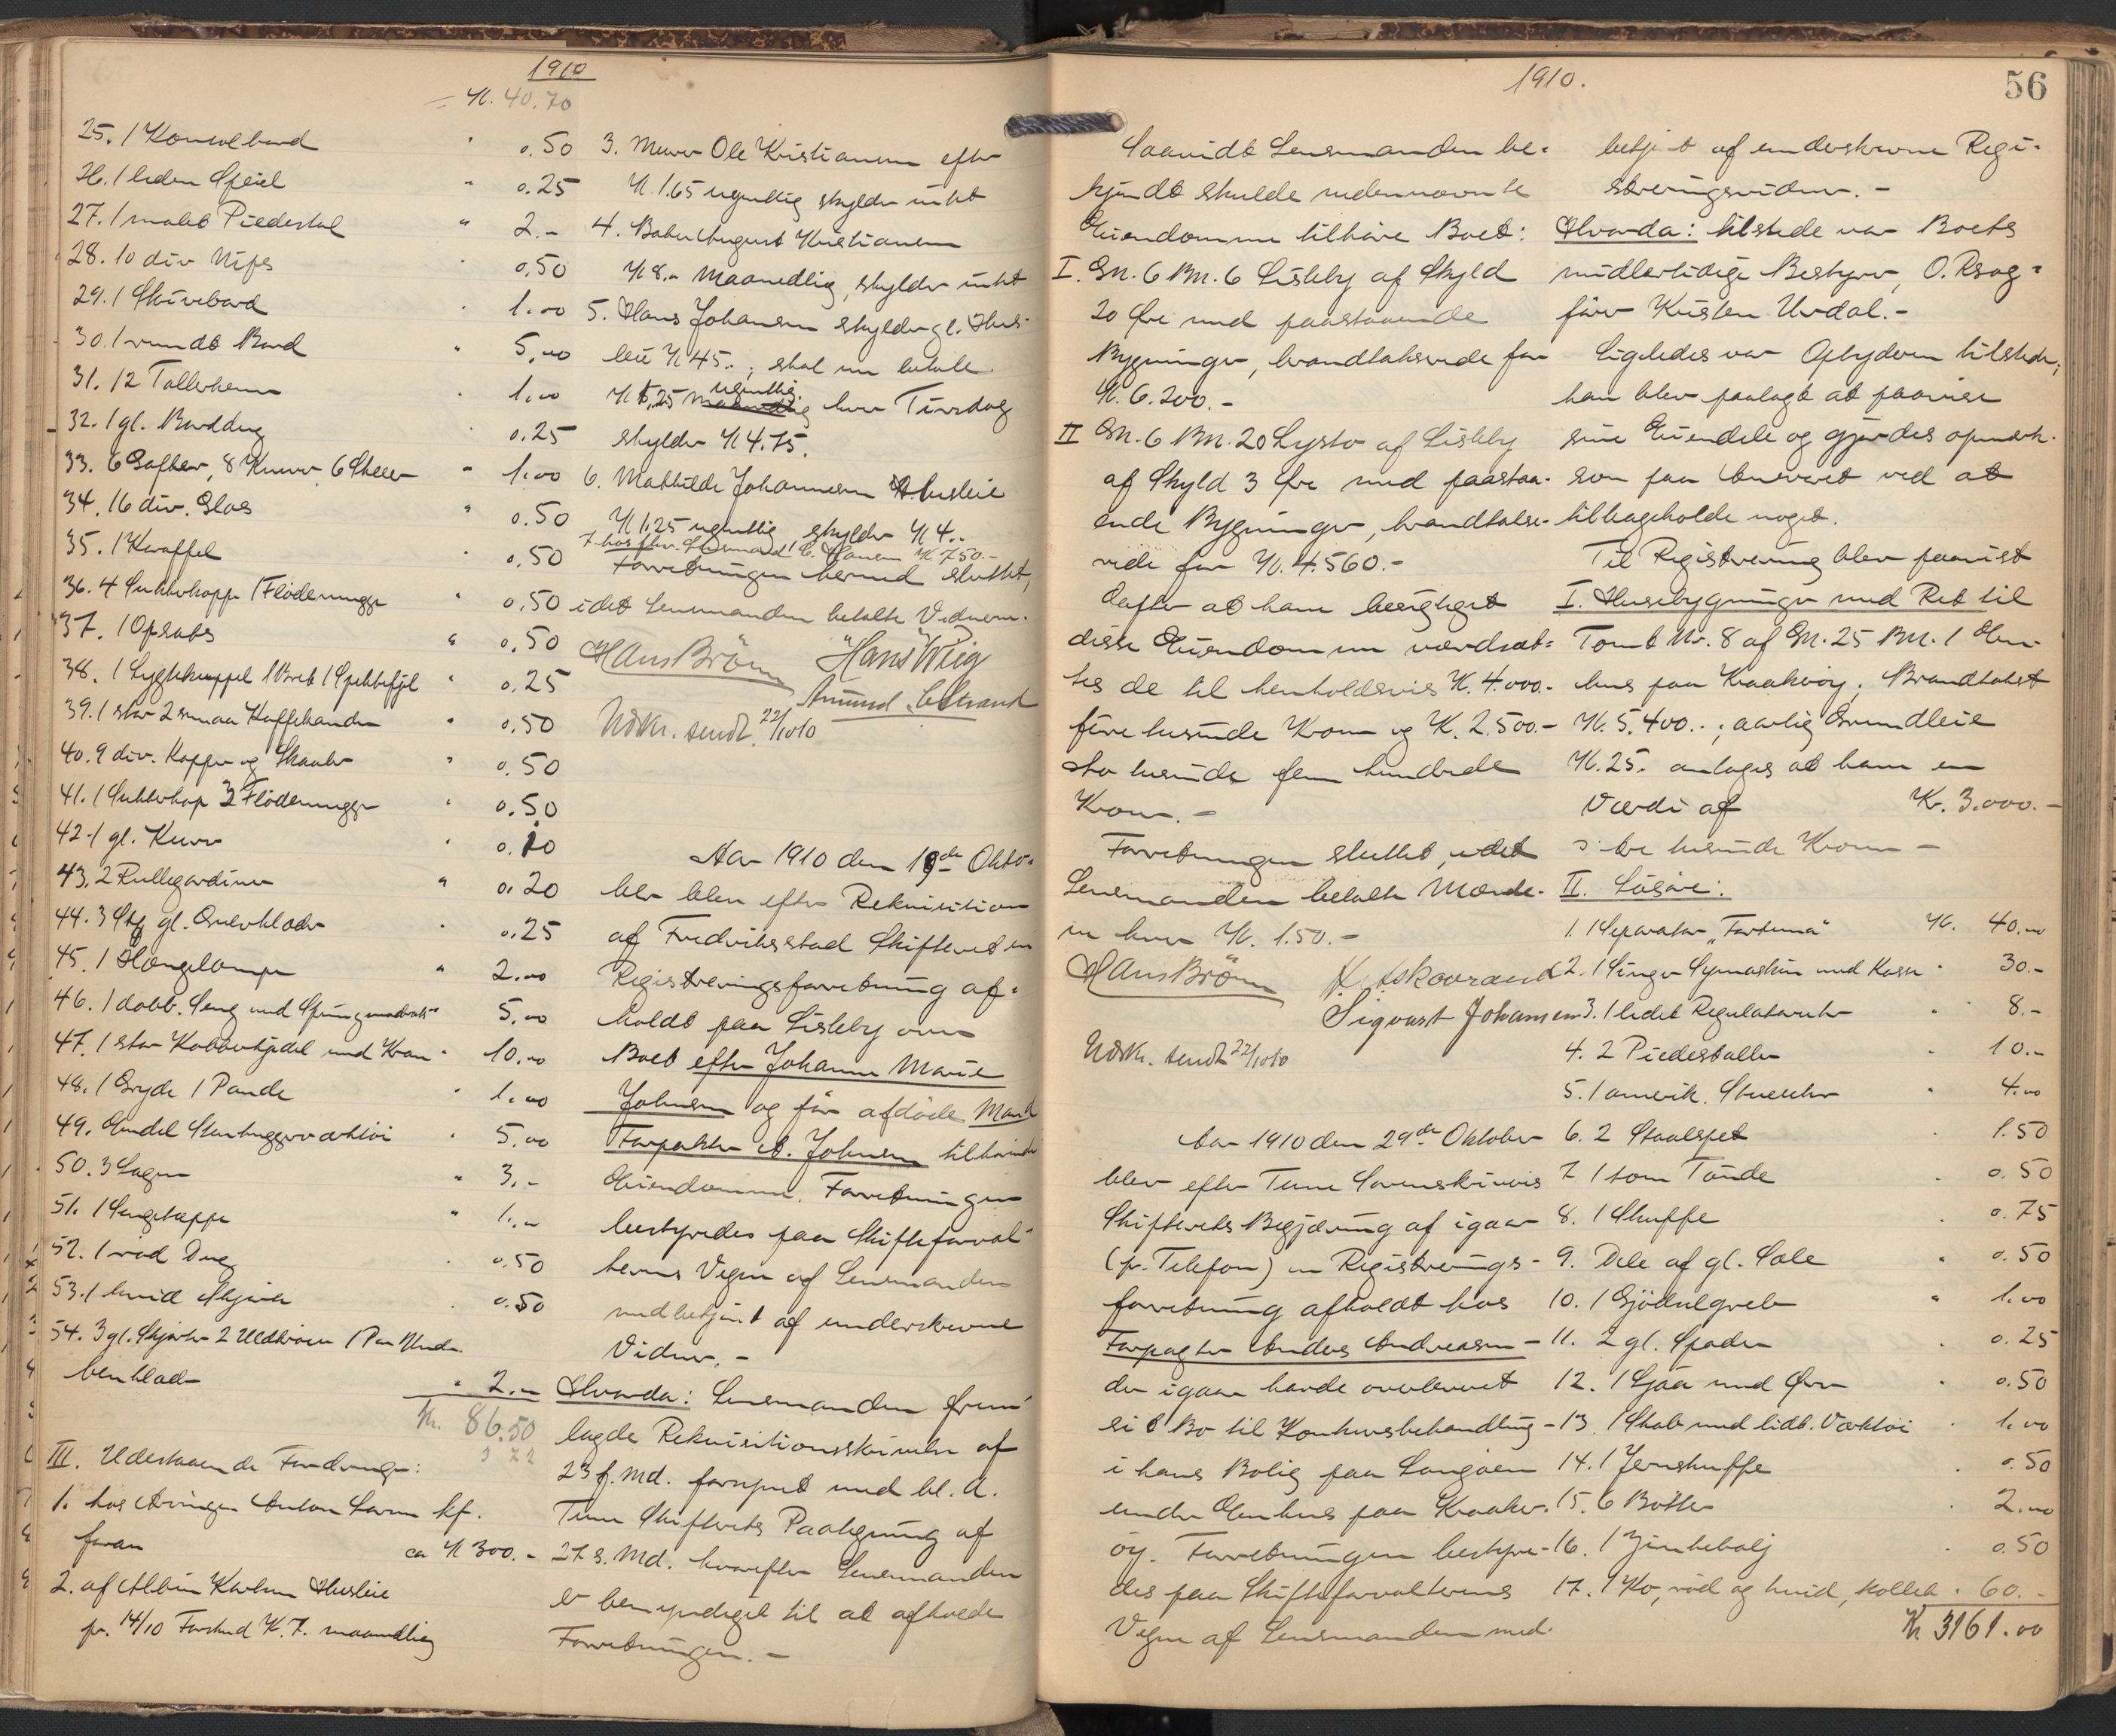 1910
Kr. 40.70
25. 1 Konsolbord " 0.50
26. 1 liden Speil " 0.25
27. 1 malet Piedestal " 2.-
28. 10 div Nips " 0.50
29. 1 Skrivebord " 1.00
30. 1 rundt Bord " 5.00
31. 12 Tallerkener " 1.00
32. 1 gl. Borddug " 0.25
33. 6 Gafler, 8 Kniver, 6 Skeer " 1.00
34. 16 div. Glas " 0.50
35. 1 Karaffel " 0.50
36. 4 Sukkerkopper 1 Flödemugge " 0.50
37. 1 Opsats " 0.50
38. 1 Lygtekuppel 1 Bret 1 Spyttefjel " 0.25
39. 1 stor 2 smaa Kaffekander " 0.50
40. 9 div. Kopper og Skaaler " 0.50
41. 1 Sukkerkop 3 Flödemugger " 0.50
42. 1 gl. Kurv " 0.10
43. 2 Rullegardiner " 0.20
44. 3 Stkr gl. Gulvklæder " 0.25
45. 1 Hængelampe " 2.00
46. 1 dobb. Seng med Springmadrats " 5.00
47. 1 stor Kobberkjedel med Kran " 10.00
48. 1 Gryde 1 Pande " 1.00
49. Endel Stenhuggerværktöi " 5.00
50. 3 Lagen " 3.-
51. 1 Sengetæppe " 1.-
52. 1 röd Dug " 0.50
53. 1 hvid Skjorte " 0.50
54. 3 gl. Skjorter 2 Uldtröier 1 Par Under-
benklæder " 2.-
Kr. 86.50
III. Udestaaende Fordringer:
1. hos Arvingen Anton Larsen kf.
foran ca Kr 300.-
2. af Albin Karlsen Husleie
pr. 14/10 Forskud Kr. 7. maanedlig
3. Murer Ole Kristiansen efter
Kr 1.65 ugentlig skylder intet
4. Baker August Kristiansen
Kr 8.- maanedlig, skylder intet
5. Hans Johansen skylder gl. Hus-
leie Kr 45.-; skal nu betale
ugentlig
Kr 1,25 maanedlig hver Tirsdag
skylder Kr 4.75.
6. Mathilde Johannesen Husleie
Kr 1.25 ugentlig skylder Kr 4.-
7. hos fhv. C. Hansen Kr 750.-
Forretningen hermed sluttet,
idet Lensmanden betalte Vidnerne.
Hans Bröm Hans Wiig
Amund C. Strand
Udskr. sendt 22/10 10
Aar 1910 den 19de Okto-
ber blev efter Rekvisition
af Fredriksstad Skifteret en
Registreringsforretning af-
holdt paa Lisleby over
Boet efter Johanne Marie
Johnsen og før afdöde Mand
Forpakter A. Johnsen tilhørende
Eiendomme. Forretningen
bestyredes paa Skifteforval-
terens Vegne af Lensmanden
med betjent af underskrevne
Vidner.-
Hvorda: Lensmanden frem-
lagde Rekvisitionsskrivelse af
23 f. Md. forsynet med bl. a.
Tune Skifterets Paategning af
27 s. Md. hvorefter Lensmanden
er bemyndiget til at afholde
Forretningen.-
1910.
56
Saavidt Lensmanden be-
kjendt skulde nedennævnte
Eiendomme tilhöre Boet:
I. Gn. 6 Bn. 6 Lisleby af Skyld
20 Öre med paastaaende
Bygninger, brandtakserede for
Kr. 6.200.-
II Gn. 6 Bn. 20 Lysto af Lisleby
af Skyld 3 Öre med paastaa-
ende Bygninger, brandtakse-
rede for Kr. 4.560.-
Efter at have besigtiget
disse Eiendomme værdsat-
tes de til henholdsvis Kr. 4.000.-
fire tusinde Kroner og Kr. 2.500.-
to tusinde fem hundrede
Kroner.-
Forretningen sluttet, idet
Lensmanden betalte Mænde-
ne hver Kr. 1.50.-
Hans Bröm
Sigvart Johansen
Udskr. sendt 22/10 10
Aar 1910 den 29de Oktober
blev efter Tune Sorenskriveris
Skifterets Begjæring af igaar
(pr. Telefon) en Registrerings-
forretning afholdt hos
Forpagter Anders Andreasen
der igaar havde overleveret
sit Bo til Konkursbehandling
i hans Bolig paa Langöen
under Enhus paa Kraaker-
öy. Forretningen bestyre-
des paa Skifteforvalterens
Vegne af Lensmanden med-
betjent af underskrevne Regi-
streringsvidner.-
Hvorda: tilstede var Boets
midlertidige Bestyrer, O. Rsag-
förer Kristen Urdal.-
Ligeledes var Opbyderen tilstede;
han blev paalagt at paavise
sine Eiendele og gjordes opmærk-
som paa Ansvaret ved at
tilbageholde noget.
Til Registrering blev paavist
I. Husebygninger med Ret til
Tomt Nr. 8 af Gn. 25 Bn. 1 En-
hus paa Kraakeröy; Brandtakst
Kr. 5.400.-; aarlig Grundleie
Kr. 25. antages at have en
Værdi af Kr. 3.000.-
o: tre tusinde Kroner -
II. Lösöre:
1. 1 Separator „Fortuna" Kr. 40.00
2. 1 Singer Symaskin med Kasse " 30.-
3. 1 lidet Regulatoruhr " 8.-
4. 2 Piedestaller " 10.-
5. 1 amerik. Stueuhr " 4.00
6. 2 Staalspet " 1.50
7. 1 tom Tönde " 0.50
8. 1 Skuffe " 0.75
9. Dele af gl. Sæle " 0.50
10. 1 Gjödselgreb " 1.00
11. 2 gl. Spader " 0.25
12. 1 Ljaa med Orv " 0.50
13. 1 Skab med lidt Værktöi " 1.00
14. 1 Jernskuffe " 0.50
15. 6 Bötter " 2.00
16. 1 Zinkebalj " 0.50
17. 1 Ko, röd og hvid, kollet " 60.-
Kr 3161.00